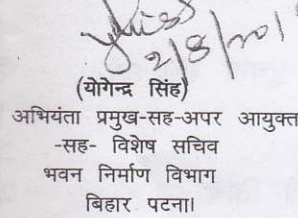 2/8/201
(योगेन्द्र सिंह)
अभियंता प्रमुख-सह-अपर आयुक्त
-सह- विशेष सचिव
भवन निर्माण विभाग
बिहार पटना।